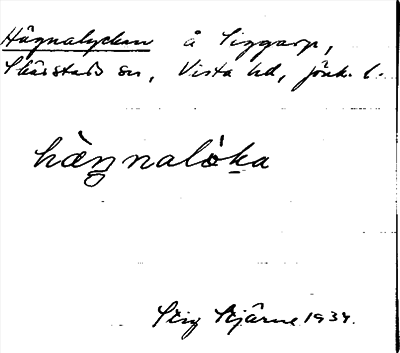 Hägnalyckan å Siggarp,
Skärstads sn, Vista hd, Jönk. l.
hàŋnalòka
Stig Stjärne 1934.